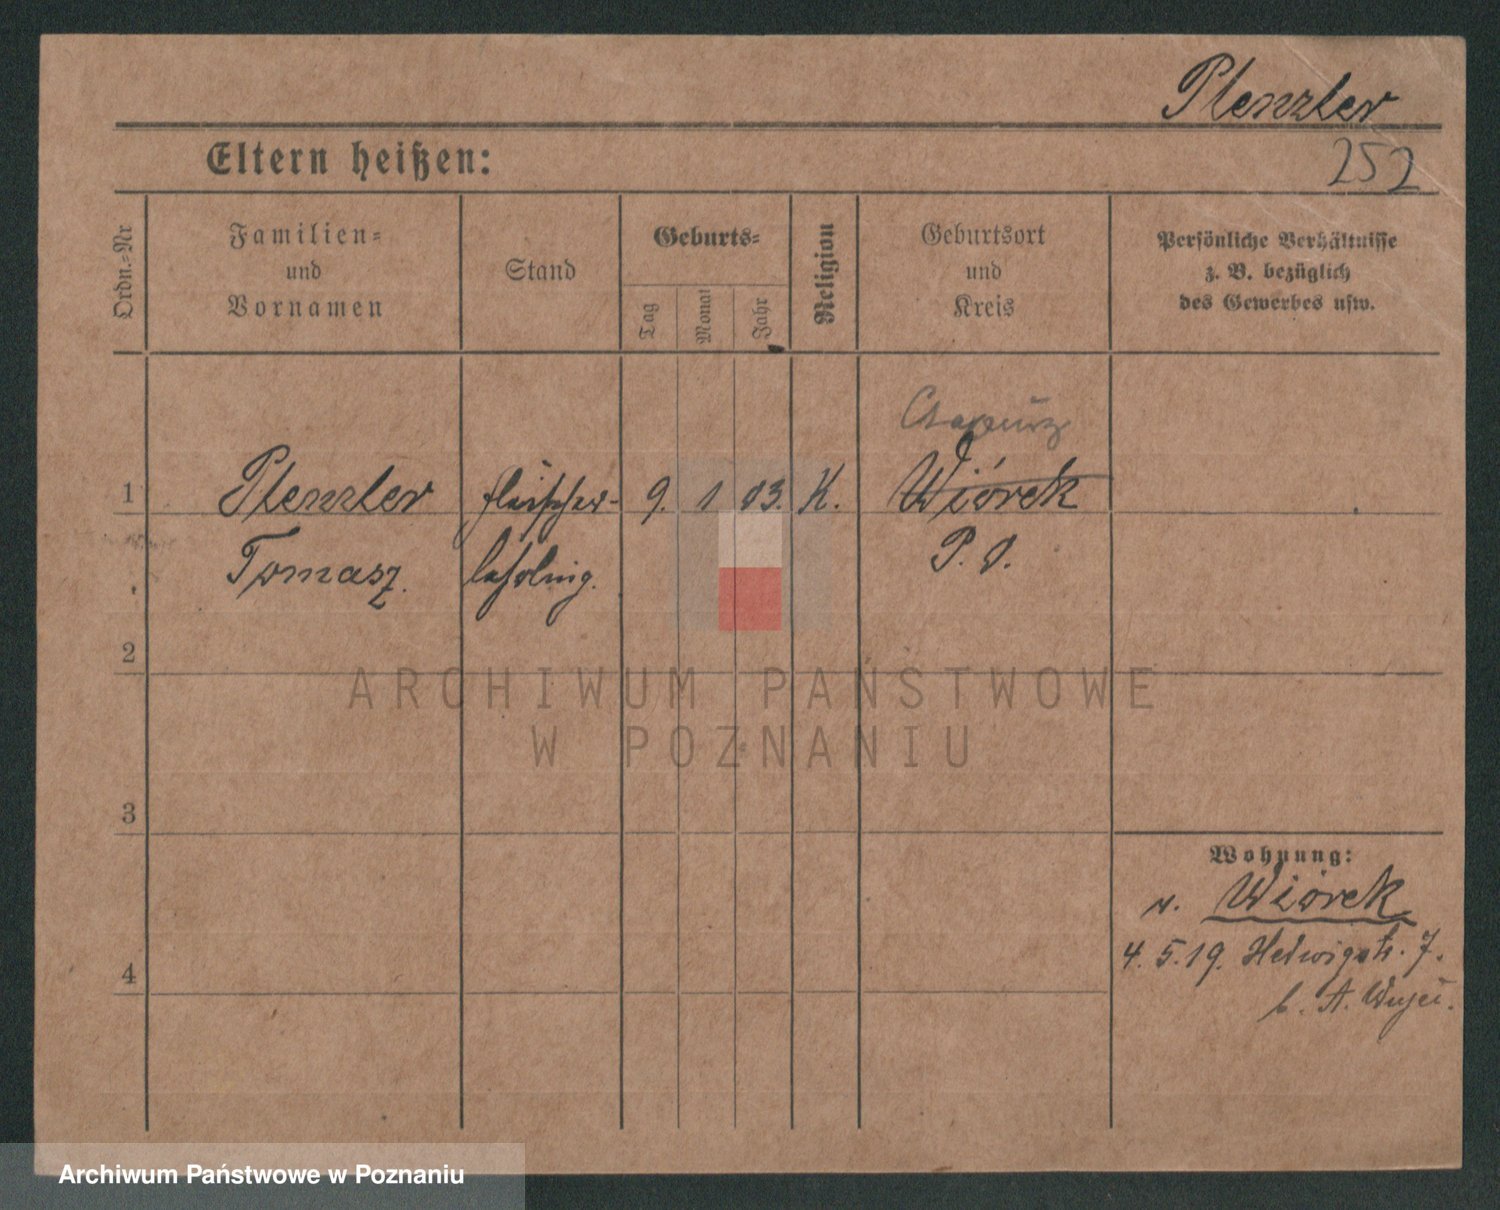 Plenzler
Eltern heißen:
252
Ordn.-Nr
Familien-
und
Vornamen
Stand
Geburts-
Tag
Monat
Jahr
Religion
Geburtsort
und
Kreis
Persönliche Verhältnisse
z. B. bezüglich
des Gewerbes usw.
1
Plenzler
Tomasz.
Fleischer-
lehrling.
9. 1 03. K.
Wiórek
P. O.
2
3
4
Wohnung:
v. Wiórek
4. 5. 19. Hedwigstr. 7.
b. A.
ARCHIWUM PAŃSTWOWE
W POZNANIU
Archiwum Państwowe w Poznaniu